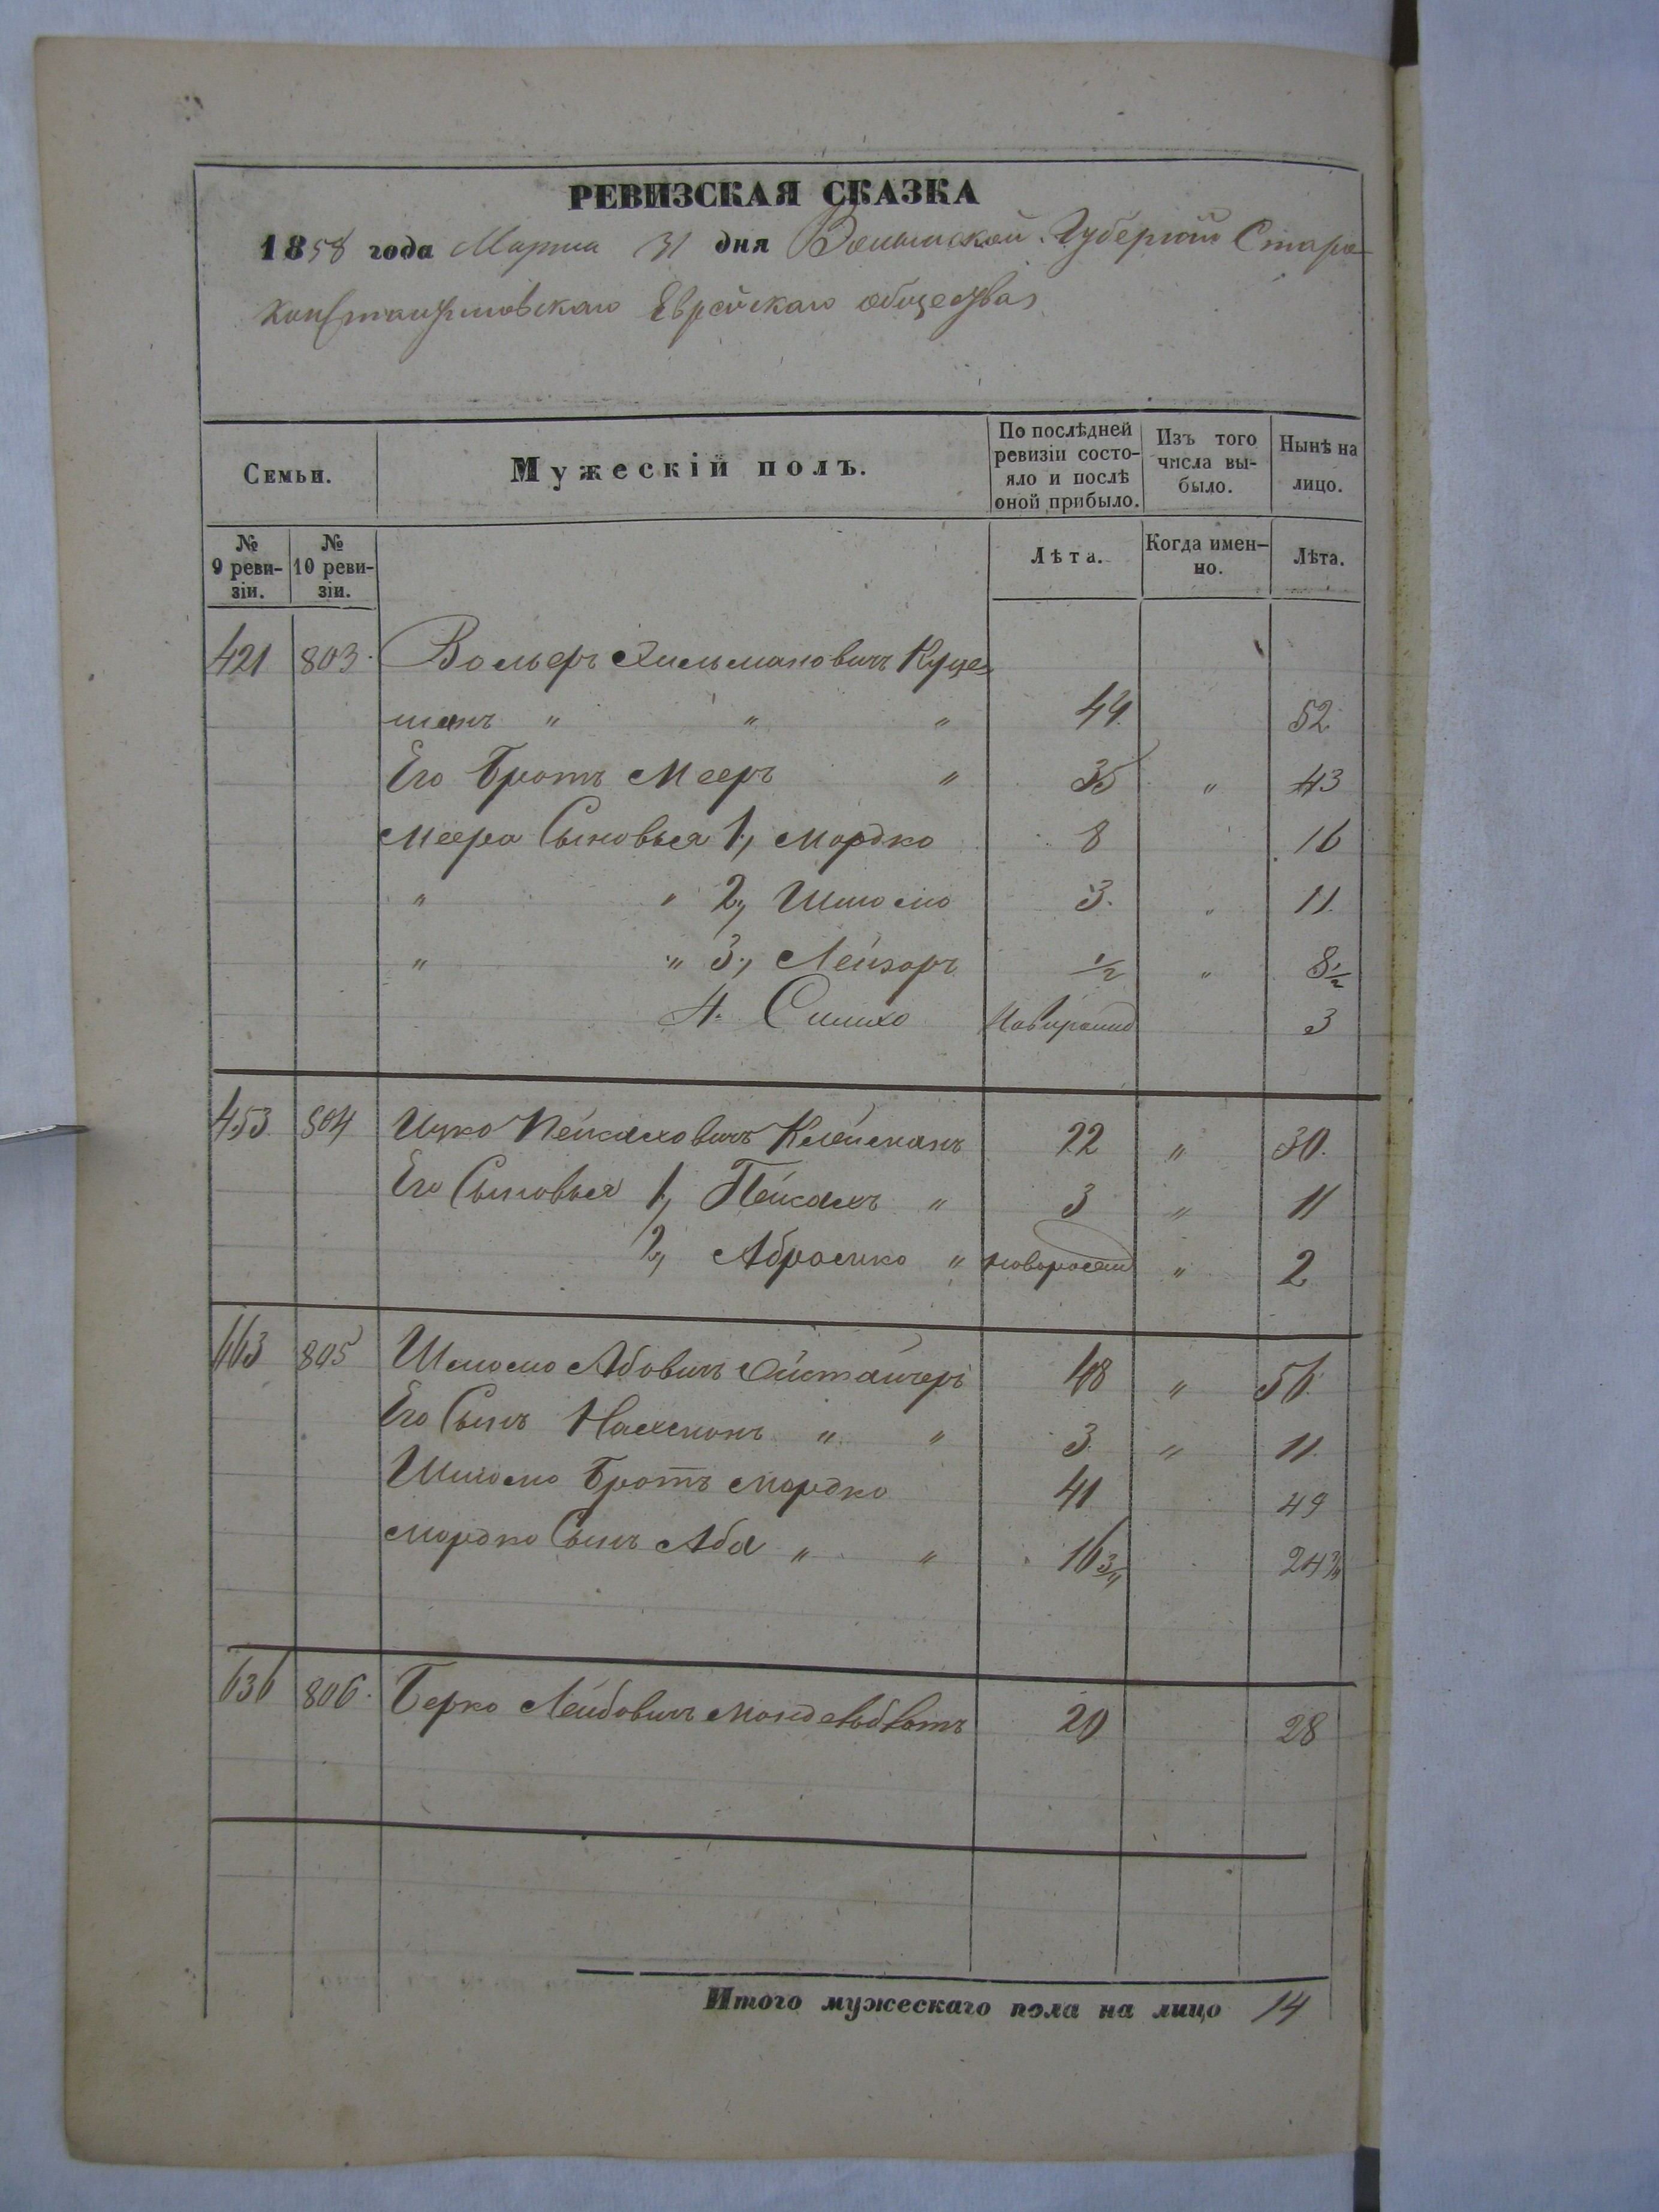 РЕВИЗСКАЯ СКАЗКА
1858 года Марта 31 дня Волынской Губернии Старо-
константиновскаго Еврейскаго общества
Семьи. Мужескій полъ. По послѣдней ревизіи состо-яло и послѣ оной прибыло. Изъ того числа вы-было. Нынѣ на лицо.
№ 9 реви-зіи. № 10 реви-зіи. Лѣта. Когда имен-но. Лѣта.
421 803. Вольфъ Хильмановичъ Куце
манъ " " " 44. 52
Его Братъ Мееръ " 35 " 43
Меера Сыновья 1, Мордко 8 16
" " 2, Шлiомо 3. " 11.
" " 3, Лейзоръ 1/2 " 8 1/2
4. Симхо 3
453 804 Ицко Пейсаховичъ Клейманъ 22 " 30.
Его Сыновья 1, Пейсахъ " 3 " 11
2, Абрамко " новорожд " 2
663 805 Шлiомо Абовичъ 48 " 56.
Его Сынъ Нахманъ " " 3. " 11.
Шлiомо Братъ Мордко 41 49
Мордко Сынъ Аба " " 16 3/4 24 3/4
636 806. Берко Лейбовичъ 20 28
Итого мужескаго пола на лицо 14